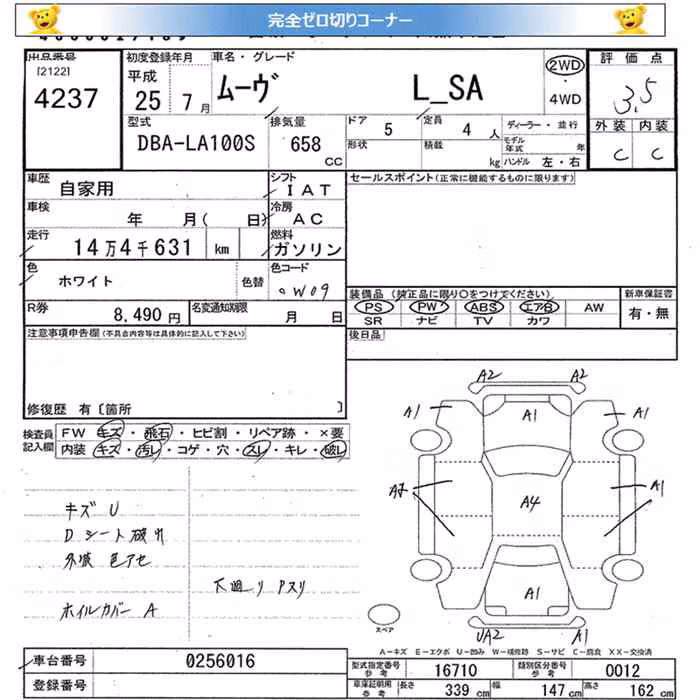 完全ゼロ切りコーナー
出品番号 初度登録年月 車名・グレード 評価点
[2122] 平成 2WD
4237 25 7月 ムーヴ L_SA ・ 3.5
4WD
型式 排気量 ドア 5 定員 4 人 ディーラー・並行 外装 内装
DBA-LA100S 658 CC 形状 積載 kg モデル年式 年 C C
ハンドル 左・右
車歴 自家用 シフト IAT セールスポイント(正常に機能するものに限ります)
車検 年 月( 日) 冷房 AC
走行 14万4千631 km 燃料 ガソリン
色 ホワイト 色替 色コード W09
装備品 (純正品に限り○をつけてください) 新車保証書
R券 8,490円 名変通知期限 月 日 PS PW ABS エアB AW 有・無
SR ナビ TV カワ
注意事項申告欄(不具合内容等は具体的に記入して下さい) 後日品
修復歴 有〔箇所 〕
A2 A2
A1 A1 A1
検査員 FW キズ・飛石・ヒビ割・リペア跡・×要
記入欄 内装 キズ・汚レ・コゲ・穴・スレ・キレ・破レ
A1
A4
キズ U
Dシート破れ
外減 色アセ
下廻り
A1
ホイルカバー A
スペア
UA2 A1
A-キズ E-エクボ U-凹み W-補修跡 S-サビ C-腐食 XX-交換済
車台番号 0256016 型式指定番号 参考 16710 類別区分番号 参考 0012
登録番号 車庫証明用 参考 長さ 339 cm 幅 147 cm 高さ 162 cm